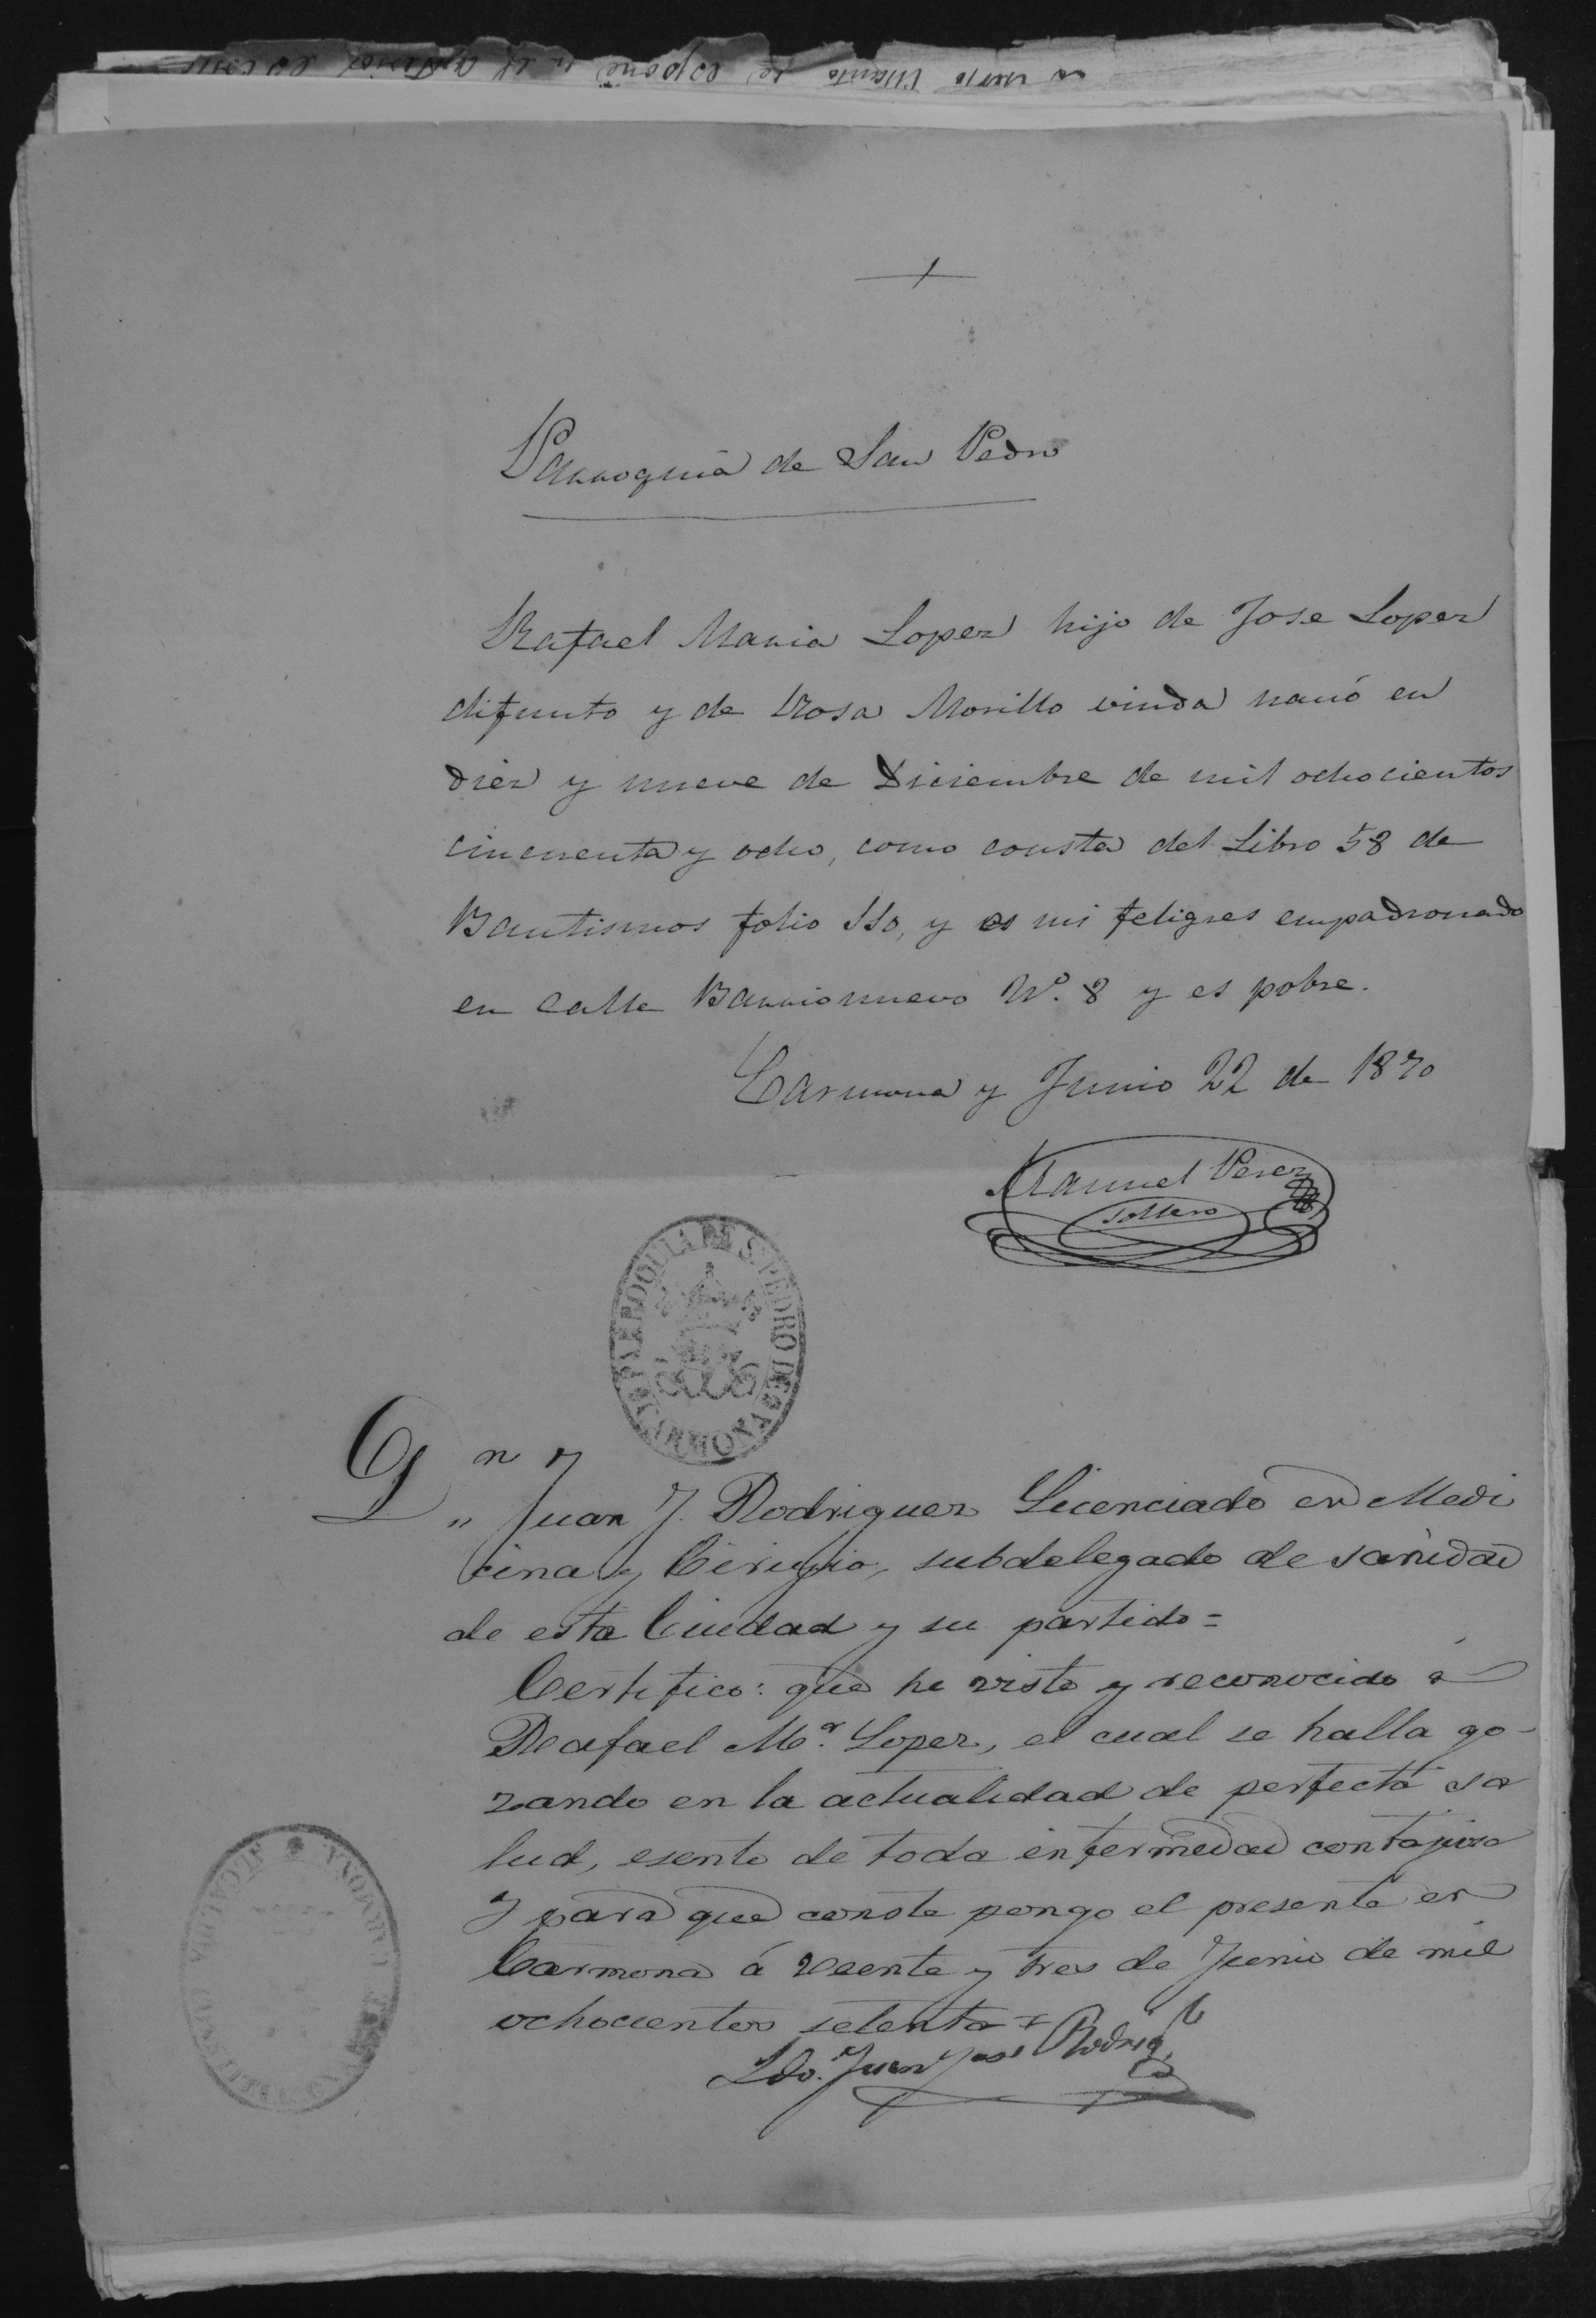 Parroquia de San Pedro
Rafael Maria Lopez hijo de Jose Lopez
difunto y de Rosa Morillo viuda nació en
diez y nueve de Diciembre de mil ochocientos
cincuenta y ocho, como consta del Libro 58 de
Bautismos folio 110, y es mi feligres empadronado
en calle Barrionuevo Nº. 8 y es pobre.
Carmona y Junio 22 de 1870
Manuel Perez
PARROQUIA DE S. PEDRO DE CARMONA
Dn
" Juan J. Rodriguez Licenciado en Medi
cina y Cirugia, subdelegado de sanidad
de esta Ciudad y su partido =
Certifico: que he visto y reconocido á
Rafael Mª. Lopez, el cual se halla go-
zando en la actualidad de perfecta sa
lud, esento de toda enfermedad contajiosa
Y para que conste pongo el presente en
Carmona á veente y tres de Junio de mil
ochocientos setenta =
Ldo. Juan José Rodrig
ALCALDIA CARMONA